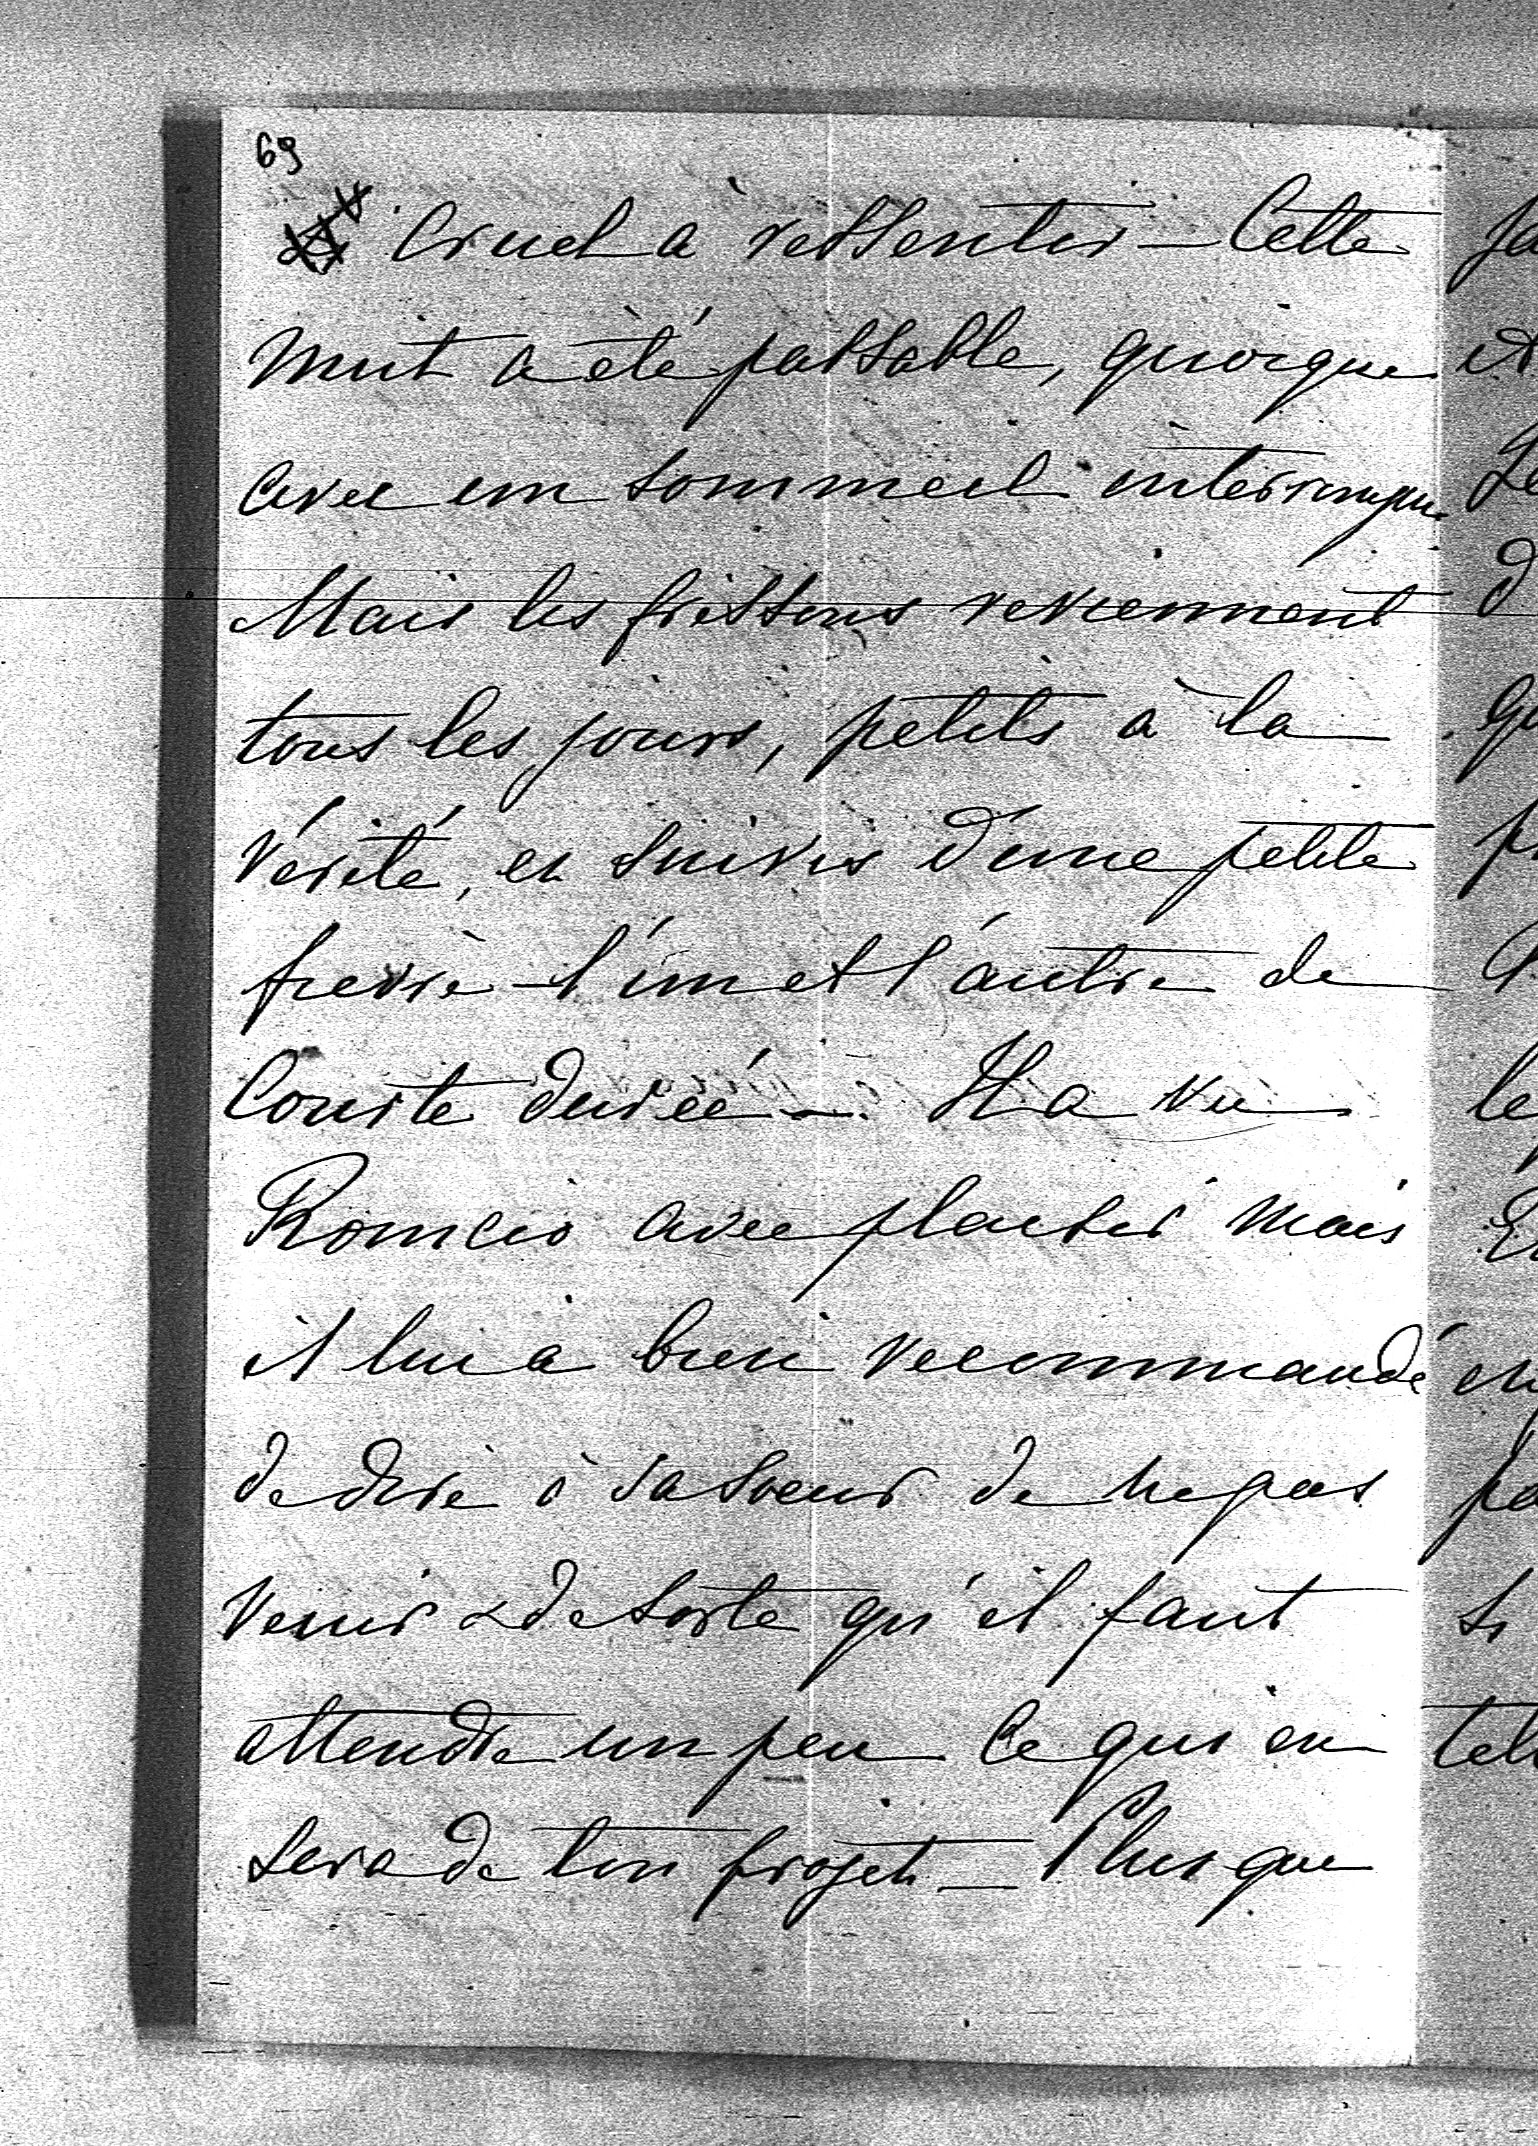 69
Cruel à ressentir — Cette
nuit a été passable, quoique
avec un sommeil interrompu
Mais les frissons reviennent
tous les jours, petits à la
vérité, et suivis d'une petite
fievre — l'un et l'autre de
Courte durée —. Il a vu
avec plaisir mais
il lui a bien recommandé
de dire à sa soeur de ne pas
venir de sorte qu'il faut
attendre un peu ce qui en
sera de ton projet — Plus que